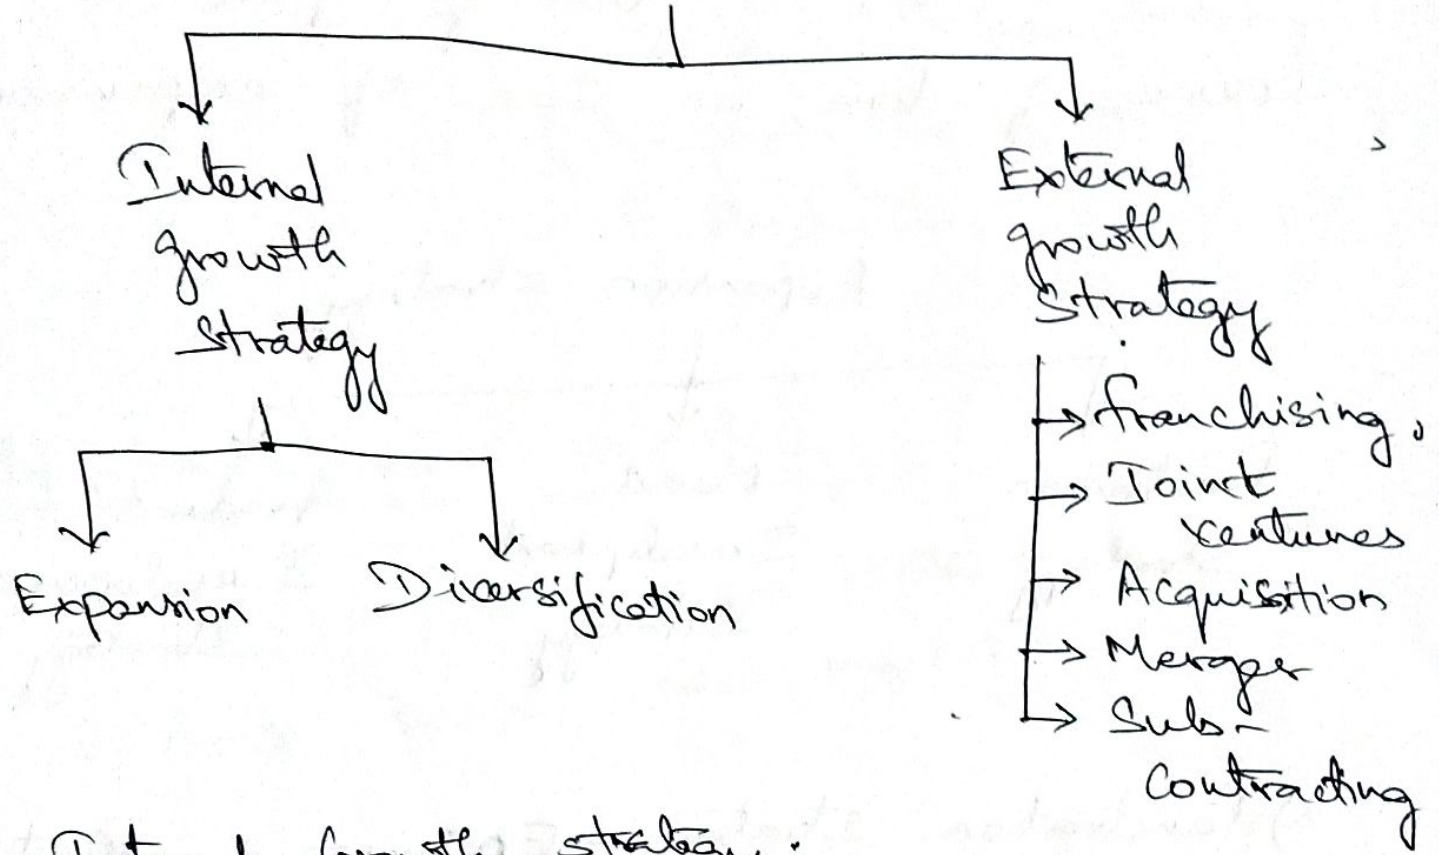 Internal
growth
strategy
Expansion
Diversification
External
growth
strategy
franchising,
Joint
ventures
Acquisition
Merger
Sub-
contracting
Internal Growth strategy: